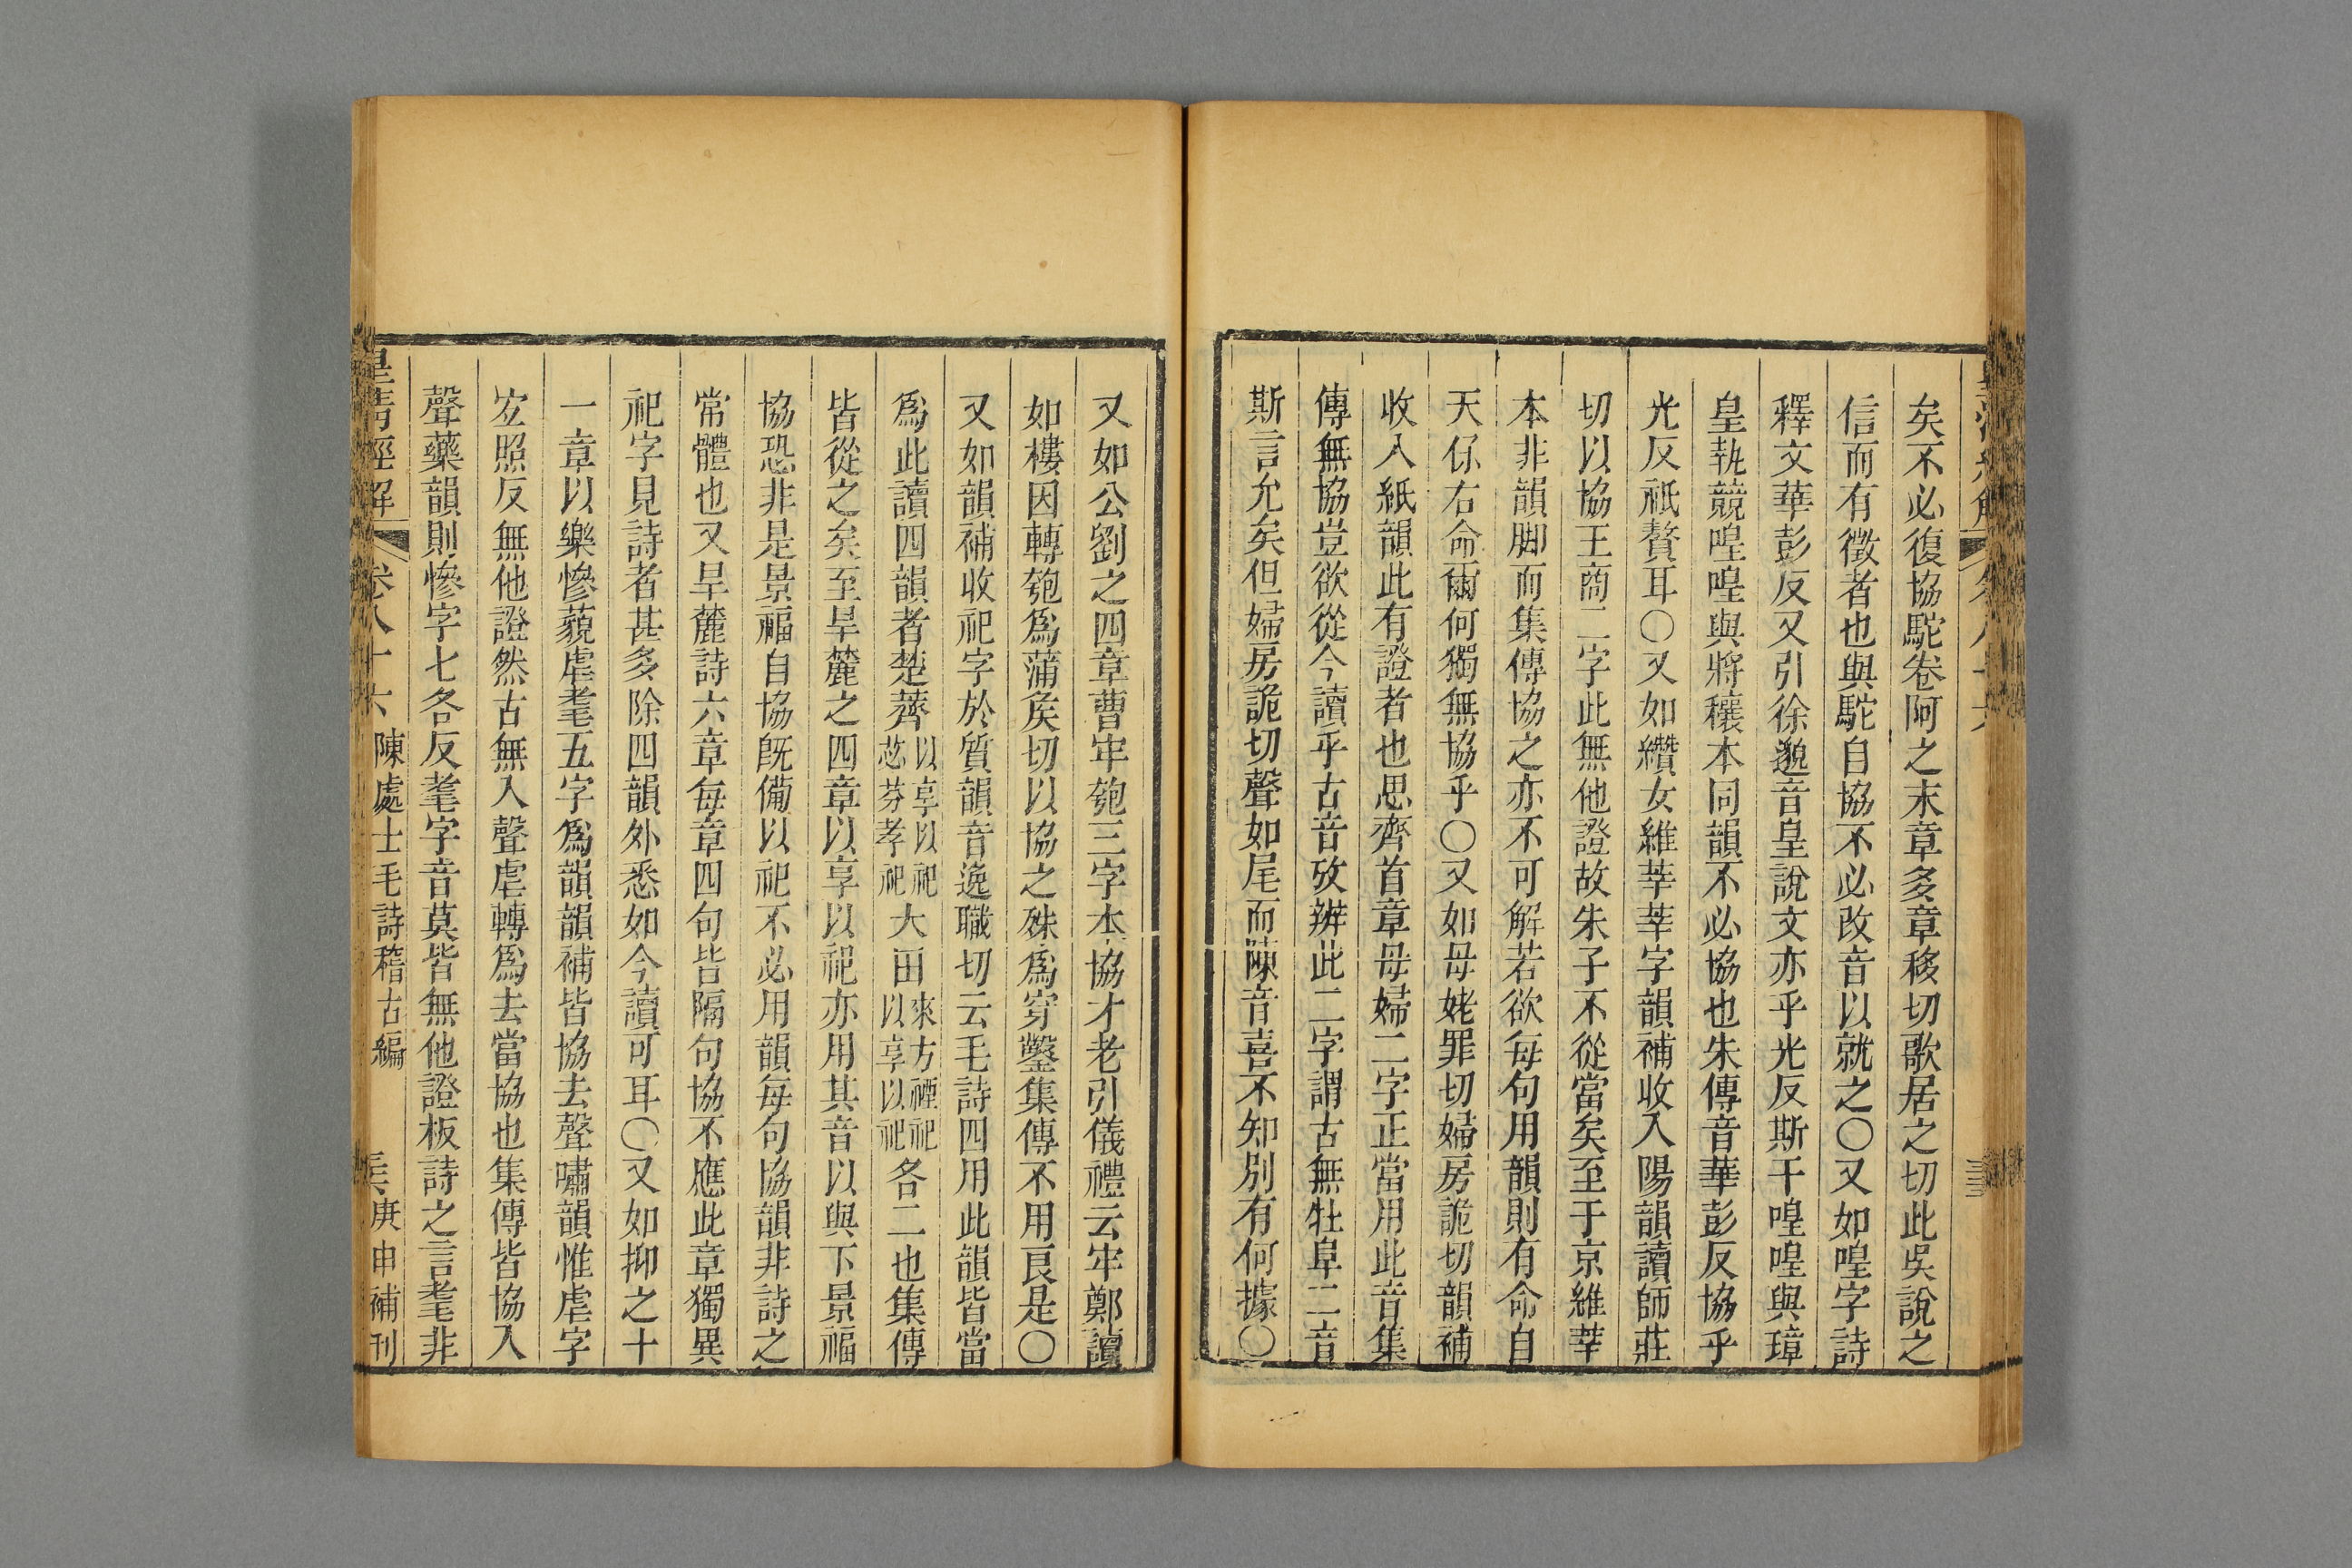 矣不必復協駝卷阿之末章多章移切歌居之切此吳說之
信而有徵者也與駝自協不必改音以就之〇又如喤字詩
釋文華彭反又引徐邈音皇說文亦乎光反斯干喤喤與璋
皇執競喤喤與將穰本同韻不必協也朱傳音華彭反協乎
光反祇贅耳〇又如纘女維莘莘字韻補收入陽韻讀師莊
切以協王商二字此無他證故朱子不從當矣至于京維莘
本非韻脚而集傳協之亦不可解若欲每句用韻則有命自
天保右命爾何獨無協乎〇又如母姥罪切婦房詭切韻補
收入紙韻此有證者也思齊首章母婦二字正當用此音集
傳無協豈欲從今讀乎古音攷辨此二字謂古無牡阜二音
斯言允矣但婦房詭切聲如尾而陳音喜不知別有何據〇
又如公劉之四章曹牢匏三字本協才老引儀禮云牢鄭讀
如樓因轉匏爲蒲矦切以協之殊爲穿鑿集傳不用良是〇
又如韻補收祀字於質韻音逸職切云毛詩四用此韻皆當
爲此讀四韻者楚薺以享以祀苾芬孝祀大田來方禋祀以享以祀各二也集傳
皆從之矣至旱麓之四章以享以祀亦用其音以與下景福
協恐非是景福自協旣備以祀不必用韻每句協韻非詩之
常體也又旱麓詩六章每章四句皆隔句協不應此章獨異
祀字見詩者甚多除四韻外悉如今讀可耳〇又如抑之十
一章以樂慘藐虐耄五字爲韻韻補皆協去聲嘯韻惟虐字
宐照反無他證然古無入聲虐轉爲去當協也集傳皆協入
聲藥韻則慘字七各反耄字音莫皆無他證板詩之言耄非
皇清經解 卷八十六 陳處士毛詩稽古編 庚申補刊